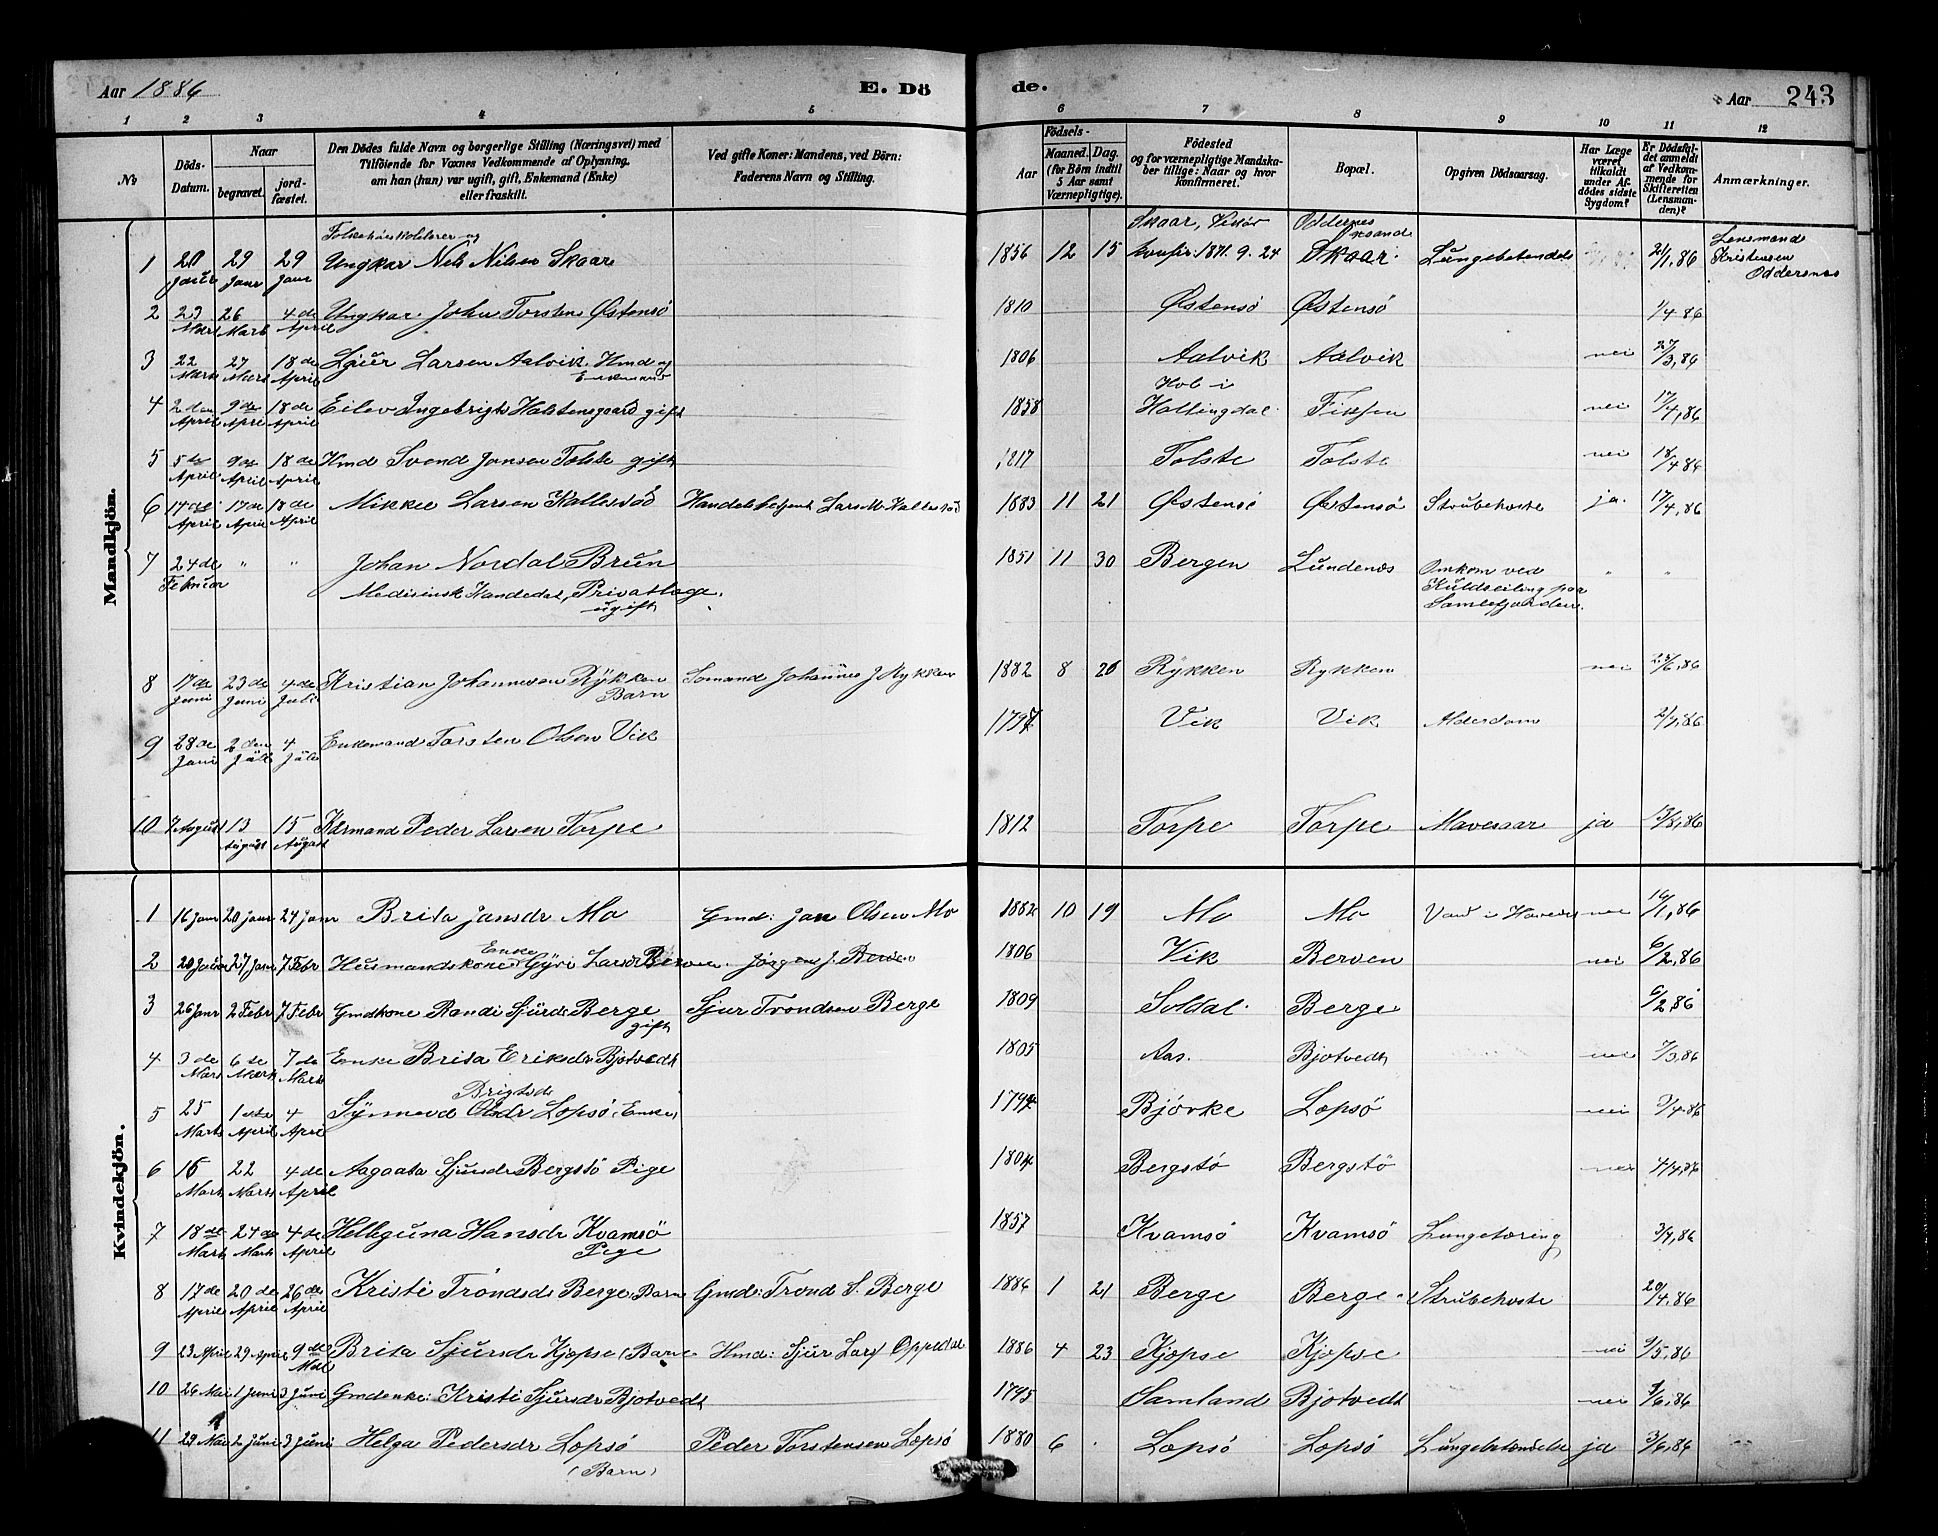 Aar 1886 E. Dö de. Aar 243
1 2 3 4 5 6 7 8 9 10 11 12
№
Döds-Datum.
Naar
begravet.
jord-fæstet.
Den Dödes fulde Navn og borgerlige Stilling (Næringsvei) med
Tilföiende for Voxnes Vedkommende af Oplysning,
om han (hun) var ugift, gift, Enkemand (Enke)
eller fraskilt.
Ved gifte Koner: Mandens, ved Börn:
Faderens Navn og Stilling.
Födsels-
Aar
Maaned. Dag.
(for Börn indtil
5 Aar samt
Værnepligtige).
Födested
og for værnepligtige Mandska-
ber tillige: Naar og hvor
konfirmeret.
Bopæl.
Opgiven Dödsaarsag.
Har Læge
været
tilkaldt
under Af-
dödes sidste
Sygdom?
Er Dödsfal-
det anmeldt
af Vedkom-
mende for
Skifteretten
(Lensman-
den)?
Anmærkninger.
Mandkjön.
1 20 Januar 29 Janr 29 Janr Ungkar Nels Nilsen Skaar 1856 12 15 Skaar, 1871. 9. 24 Oddernes Skaar 21/1, 86 Lensmand Kristensen Oddersnes
2 23 Marts 26 Marts 4de April Ungkar John Torstens Østensö 1810 Østensö Østensö 1/4 86
3 22 Marts 27 Marts 18de April Sjur Larsen Aalvik, Hmd og Enkemand 1806 Aalvik Aalvik nei 27/3, 86
4 2den April 9de April 18de April Eilev Ingebrigts Halstensgaard gift 1858 Hol i Hallingdal Fixsen nei 17/4, 86
5 5te April 9de April 18de April Hmd Svend Jonsen Tolste gift 1817 Tolste Tolste nei 18/4 86
6 14de April 17de April 18de April Mikkel Larsen Kallesöd Handelsbetjent Lars M. Kallesöd 1883 11 21 Østensö Østensö Strubehoste ja. 17/4, 86
7 24de Februar " " Johan Nordal Brun 1851 11 30 Bergen Lundenes Omkom ved " "
Medisinsk Kandedat, Privatlæge. Kuldseiling paa
ugift Samlefjorden.
8 17de Juni 23de Juni 4de Juli Kristian Johannesen Rykken Barn Somand Johannes J Rykken 1882 8 26 Rykken Rykken nei 23/6, 86
9 28de Juni 2den Juli 4 Juli Enkemand Torsten Olsen Vik 1797 Vik Vik Alderdom 2/7, 86
10 7 August 13 August 15 August Kaarmand Peder Larsen Torpe 1812 Torpe Torpe Mavesaar ja 13/8, 86
Kvindekjön.
1 16 Janr 20 Janr 24 Janr Brita Jansdr Mo Gmd: Jan Olsen Mo 1882 10 19 Mo Mo Vand i Hovedet nei 16/1, 86
2 20 Januar 27 Janr 7 Febr Husmandskone Enke Gyri Larsdr Berven Jörgen J. Berven 1806 Vik Berven nei 6/2, 86
3 26 Janr 2 Febr 7 Febr Gmdkone Randi Sjurdr Berge gift Sjur Trondsen Berge 1809 Soldal Berge 6/2 86
4 3de Marts 6te Marts 7de Marts Enke Brita Eriksdr Bjotvedt 1805 Aas. Bjotvedt nei 7/3, 86
5 25 Marts 1ste April 4 April Synneva Brigtsd Olsdr Lopsö (Enke) 1794 Björke Lopsö nei 3/4 86
6 16 Marts 22 Marts 4de April Aagaata Sjursdr Bergstö Pige 1804 Bergstö Bergstö nei 4/4, 86
7 18de Marts 24de Marts 4de April Helleguna Hansdr Kvamsö Pige 1857 Kvamsö Kvamsö Lungetæring 3/4, 86
8 17de April 20de April 26de April Kristi Tröndsd Berge, Barn Gmd: Trond S. Berge 1886 1 21 Berge Berge Strubehoste 20/4, 86
9 23 April 29 April 9de Mai Brita Sjursdr Kjepse (Barn Hmd: Sjur Lars Oppedal 1886 4 23 Kjepse Kjepse nei 9/5, 86
10 26 Mai 1 Juni 3 Juni Gmdenke: Kristi Sjursdr Bjotvedt 1795 Samland Bjotvedt nei 1/6, 86
11 29 Mai 2 Juni 3 Juni Helga Pedersdr Lopsö (Barn) Peder Torstensen Lopsö 1880 6 Lopsö Lopsö Lungebetændelse ja 3/6, 86